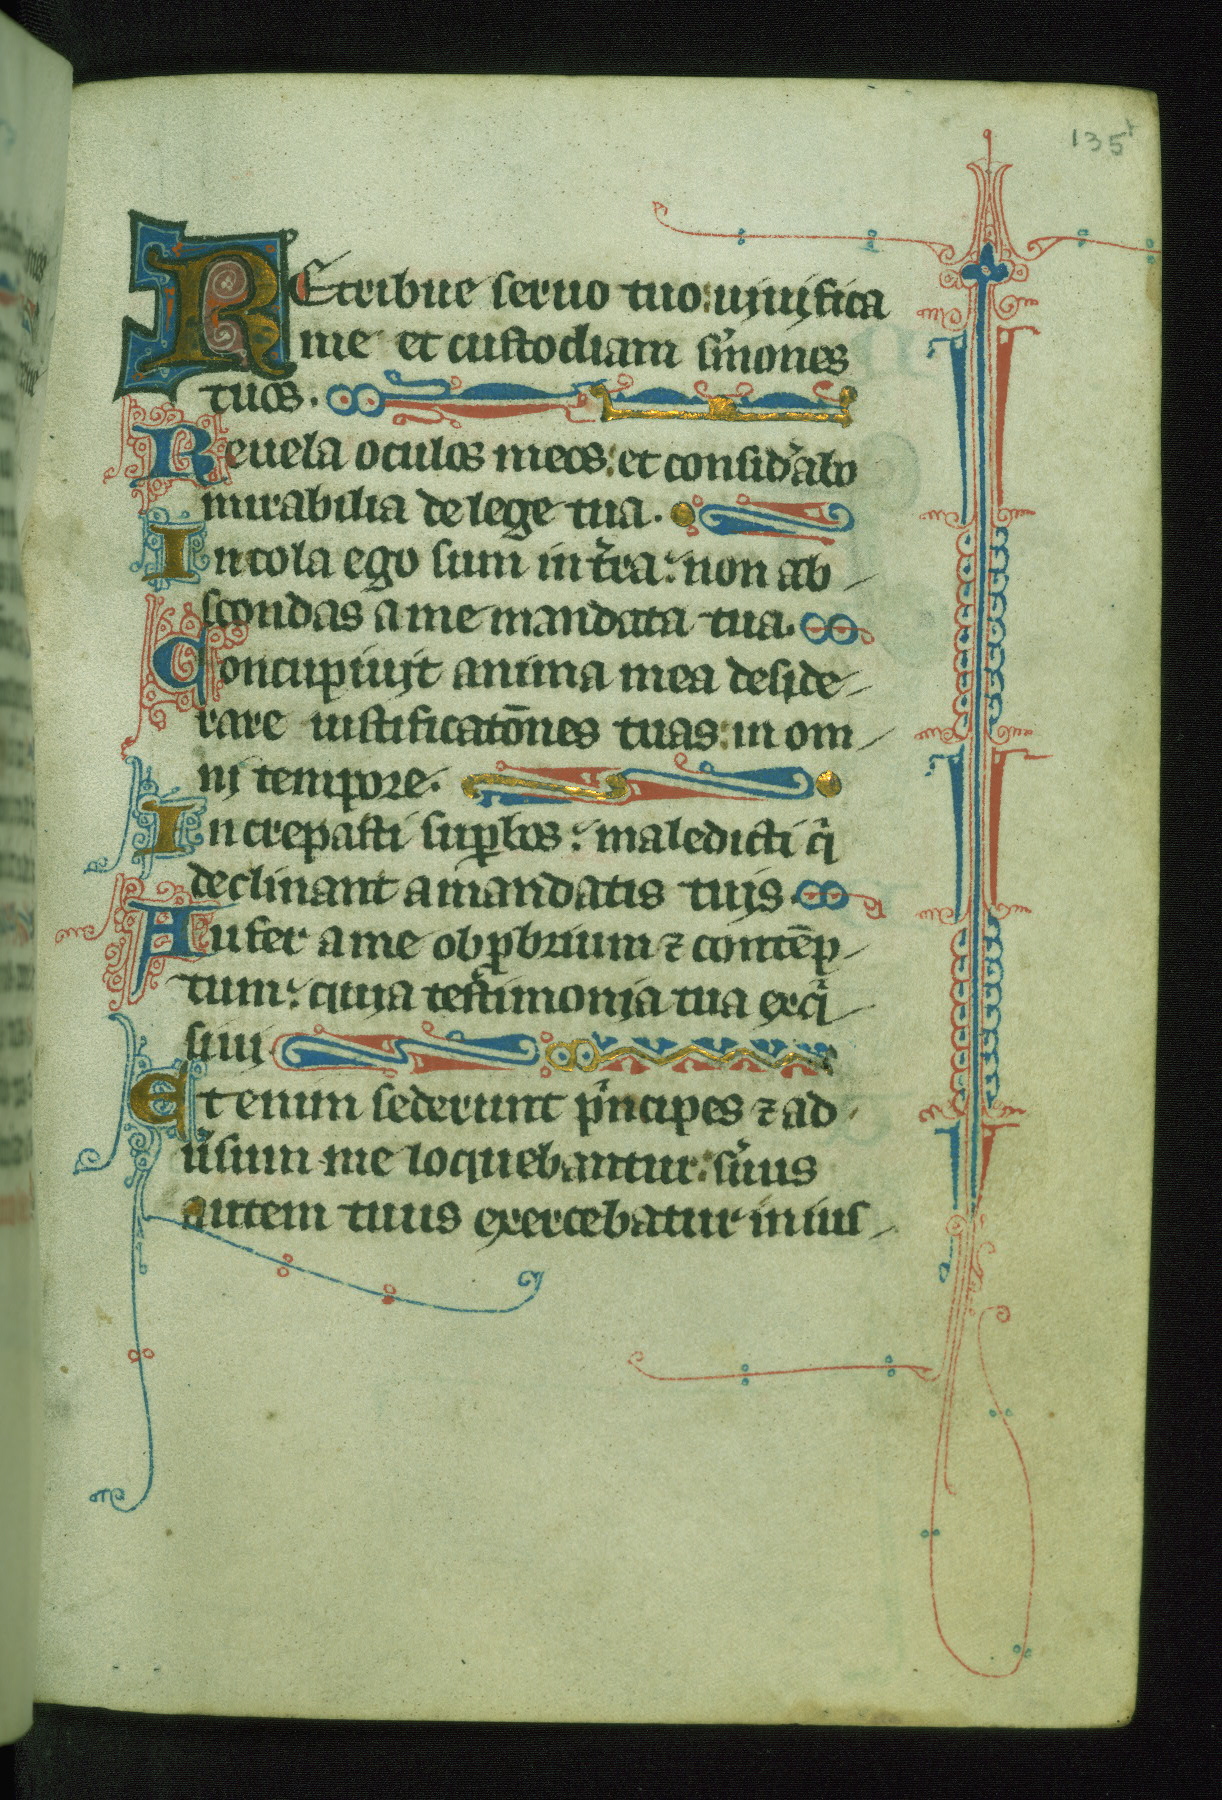 135r
REtribue seruo tuo: uiuifica
me et custodiam s̉mones
tuos.
Reuela oculos meos: et consid̉abo
mirabilia de lege tua.
Incola ego sum in t̉ra: non ab
scondas a me mandata tua.
Concupiuit anima mea deside
rare iustificatōnes tuas: in om
ni tempore.
Increpasti suꝑbos: maledicti qi
declinant a mandatis tuis
Aufer a me obꝓbrium ⁊ contēp
tum: quia testimonia tua exqi
siui
Et enim sederunt pincipes ⁊ ad
ủsum me loquebantur: s̉uus
autem tuus exercebatur in ius